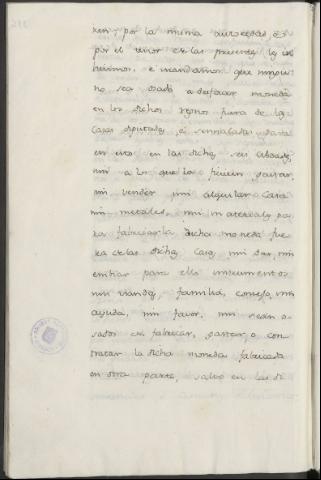 por la misma autoridad, é
por el tenor de las presentes les in
hivimos, e mandamos que ningu
no sea osado a desfacer moneda
en los dichos reynos fuera de las
casas diputadas, é sennaladas para
en esto en las dichas seis cibdades
nin a los que la ficiesen gastar,
nin vender, nin alquilar casa
nin metales, nin materiales pa
ra fabricar la dicha moneda fue
ra de las dichas casas, nin dar, nin
embiar para ello instrumentos
nin viandas, familia, consejo, nin
ayuda, nin favor, nin sean o
sados de fabricar, gastar, o con
tratar la dicha moneda fabricada
en otra parte, salvo en las di